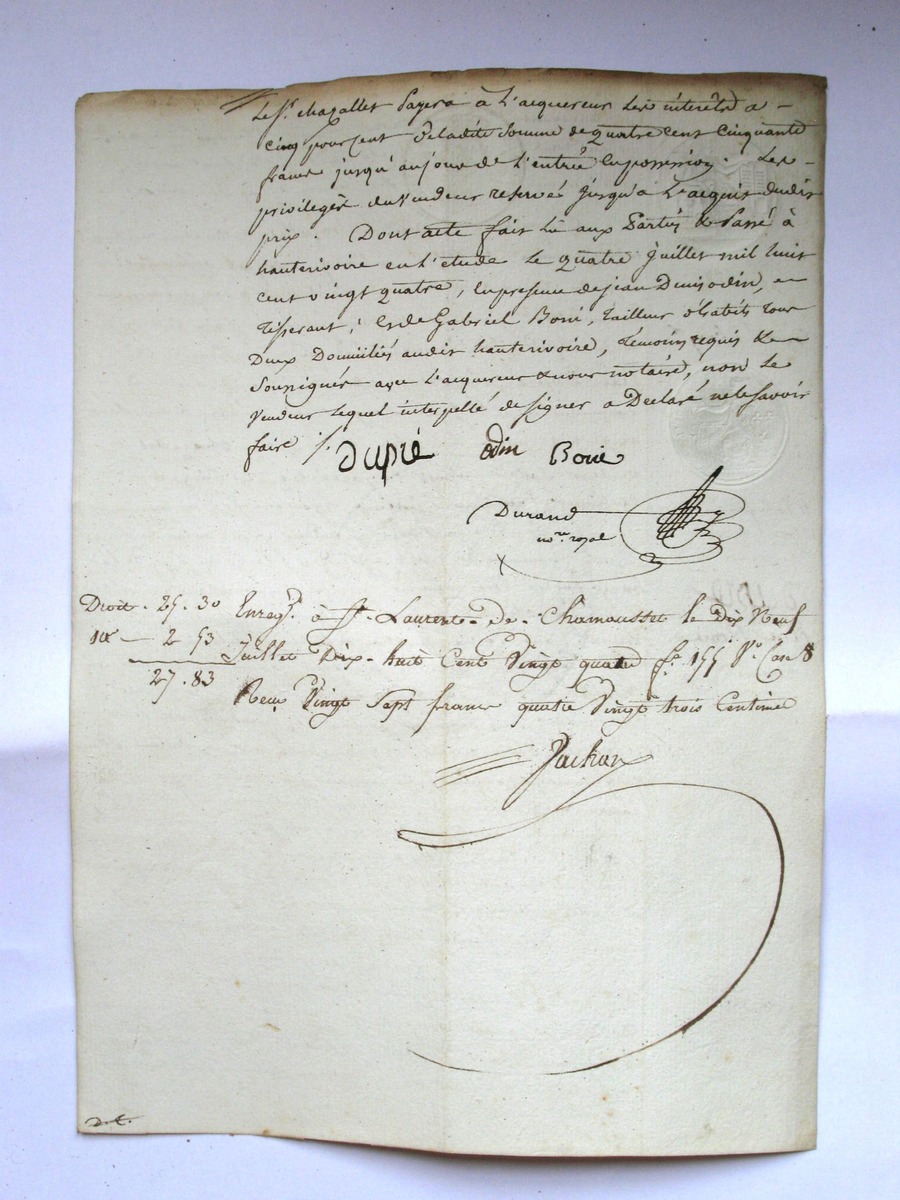 Le Sr. chazallet payera à l'acquereur les intérêts a
cinq pour cent de ladite somme de quatre cent cinquante
francs jusqu'au jour de l'entrée en possession. Les
privilèges du vendeur reservés jusqu'a l'acquis dudit
prix. Dont acte fait lû aux parties & passé à
hauterivoire en l'etude le quatre juillet mil huit
cent vingt quatre, en presence de jean Denis odin,
tisserant, & de Gabriel Boné, tailleur d'habits tous
deux domiciliés audit hauterivoire, témoins requis &
soussignés avec l'acquereur & nous notaire, non le
vendeur lequel interpellé de signer a declaré ne le savoir
faire ./.
Dupré odin Boné
Durand
nore. royal
Droit . 25 . 30 Enregt. à St. Laurent - de - Chamousset le Dix Neuf
10e — 2 53 Juillet Dix - huit Cent Vingt quatre fo. 155 Vo. Cas 8
27 . 83 Reçu Vingt Sept francs quatre Vingt trois Centimes